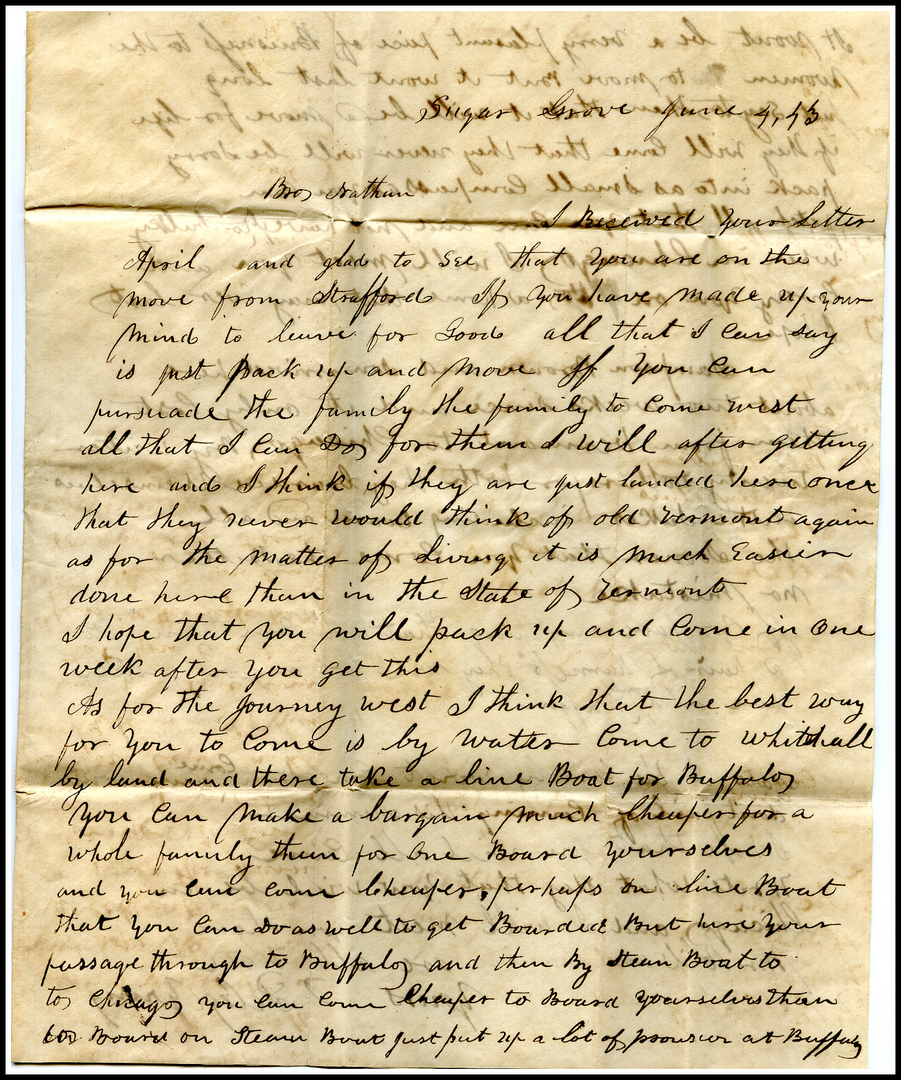 Sugar Grove June 4, 43
Bro, Nathan
I Received Your Letter
April and glad to see that you are on the
move from Strafford If you have made up your
mind to leave for Good all that I can say
is just Pack up and move If you can
pursuade the family the family to come west
all that I can Do, for them I will after getting
here and I think if they are just landed here once
that they never would think of old Vermont again
as for the matter of Living it is much Easier
done here than in the State of Vermont
I hope that you will pack up and come in one
week after you get this
As for the Journey west I think that the best way
for you to Come is by Watter Come to Whitehall
by land and there take a line Boat for Buffalo,
You can make a bargain much Cheaper for a
whole family than for one Board yourselves
and you can come Cheaper, perhaps on line Boat
that you can Do as well to get Boarded But hire your
passage through to Buffalo, and then By Steam Boat to
to, Chicago, you can come Cheaper to Board yourselves than
Board on Steam Boat just put up a lot of provision at Buffalo,